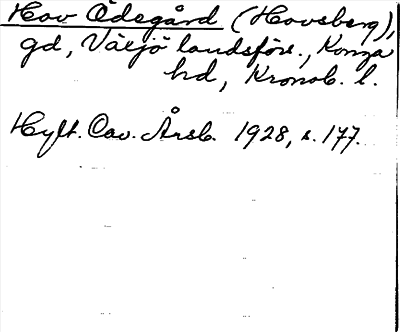 Hov Ödegård (Hovsberg),
gd, Växjö landsförs., Konga
hd, Kronob. l.
Hylt. Cav. Årsb. 1928, s. 177.